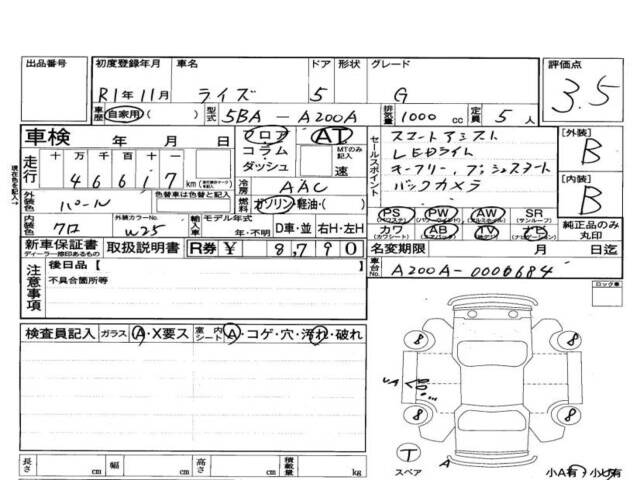 出品番号
初度登録年月 車名 ドア 形状 グレード 評価点
R1年11月 ライズ 5 G 3.5
車歴 自家用・( ) 型式 5BA-A200A 排気量 1000 cc 定員 5 人
車検 年 月 日
フロア コラム・ダッシュ
AT
MTのみ記入
速
現在色を記入→
走行 十 万 千 百 十
4 6 6 1 7 km
冷房 AAC
燃料 ガソリン・軽油・( )
セールスポイント
スマートアシスト
LEDライト
キーフリー、プッシュスタート
バックカメラ
[外装] B
[内装] B
外装色 パール
内装色 クロ 外装カラーNo. W25 輸入車 モデル年式 年・不明 D車・並 右H・左H
PS PW AW SR
(パワステ) (パワーウィンドウ) (サンルーフ)
カワ AB TV ナビ
(カワシート) (エアバック) (ナビゲーション)
純正品のみ丸印
新車保証書 取扱説明書 R券 ¥ 8,790
ディーラー捺印あるもの
名変期限 月 日迄
車台No. A200A-0000684
注意事項
後日品【 】
不具合箇所等
ロック車
検査員記入 ガラス A・X要ス 室内シート A・コゲ・穴・汚れ・破れ
8 8
8 8
T
スペア
A
長さ cm 幅 cm 高さ cm 積載量 kg
小A有